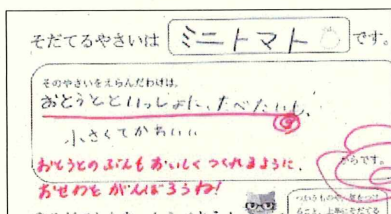 そだてるやさいは ミニトマト です。
そのやさいをえらんだわけは、
おとうとといっしょに、たべたいも、
小さくてかわいい
からです。
おとうとの ぶんも おいしく つくれますように、
おせわを がんばろうね!